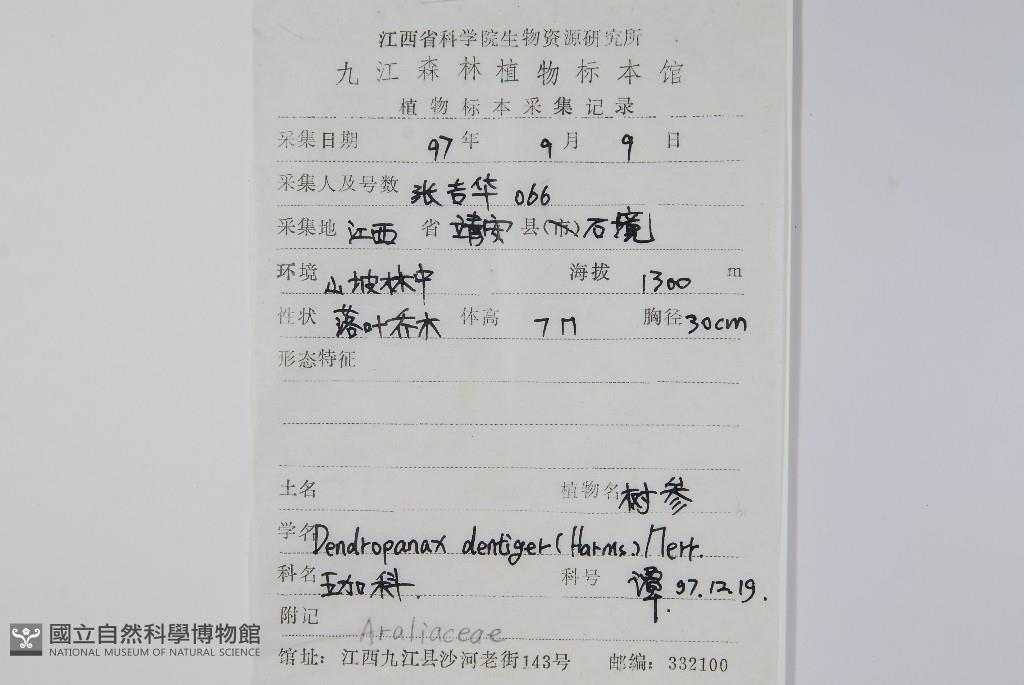 江西省科学院生物资源研究所
九江森林植物标本馆
植物标本采集记录
采集日期 97年 9月 9日
采集人及号数 张吉华 066
采集地 江西 省 靖安 县(市)石境
环境 山坡林中 海拔 1300 m
性状 落叶乔木 体高 7M 胸径 30cm
形态特征
土名 植物名 树参
学名 Dendropanax dentiger (Harms.) Merr.
科名 五加科. 科号 谭 97.12.19.
附记 Araliaceae
馆址：江西九江县沙河老街143号 邮编：332100
國立自然科學博物館
NATIONAL MUSEUM OF NATURAL SCIENCE